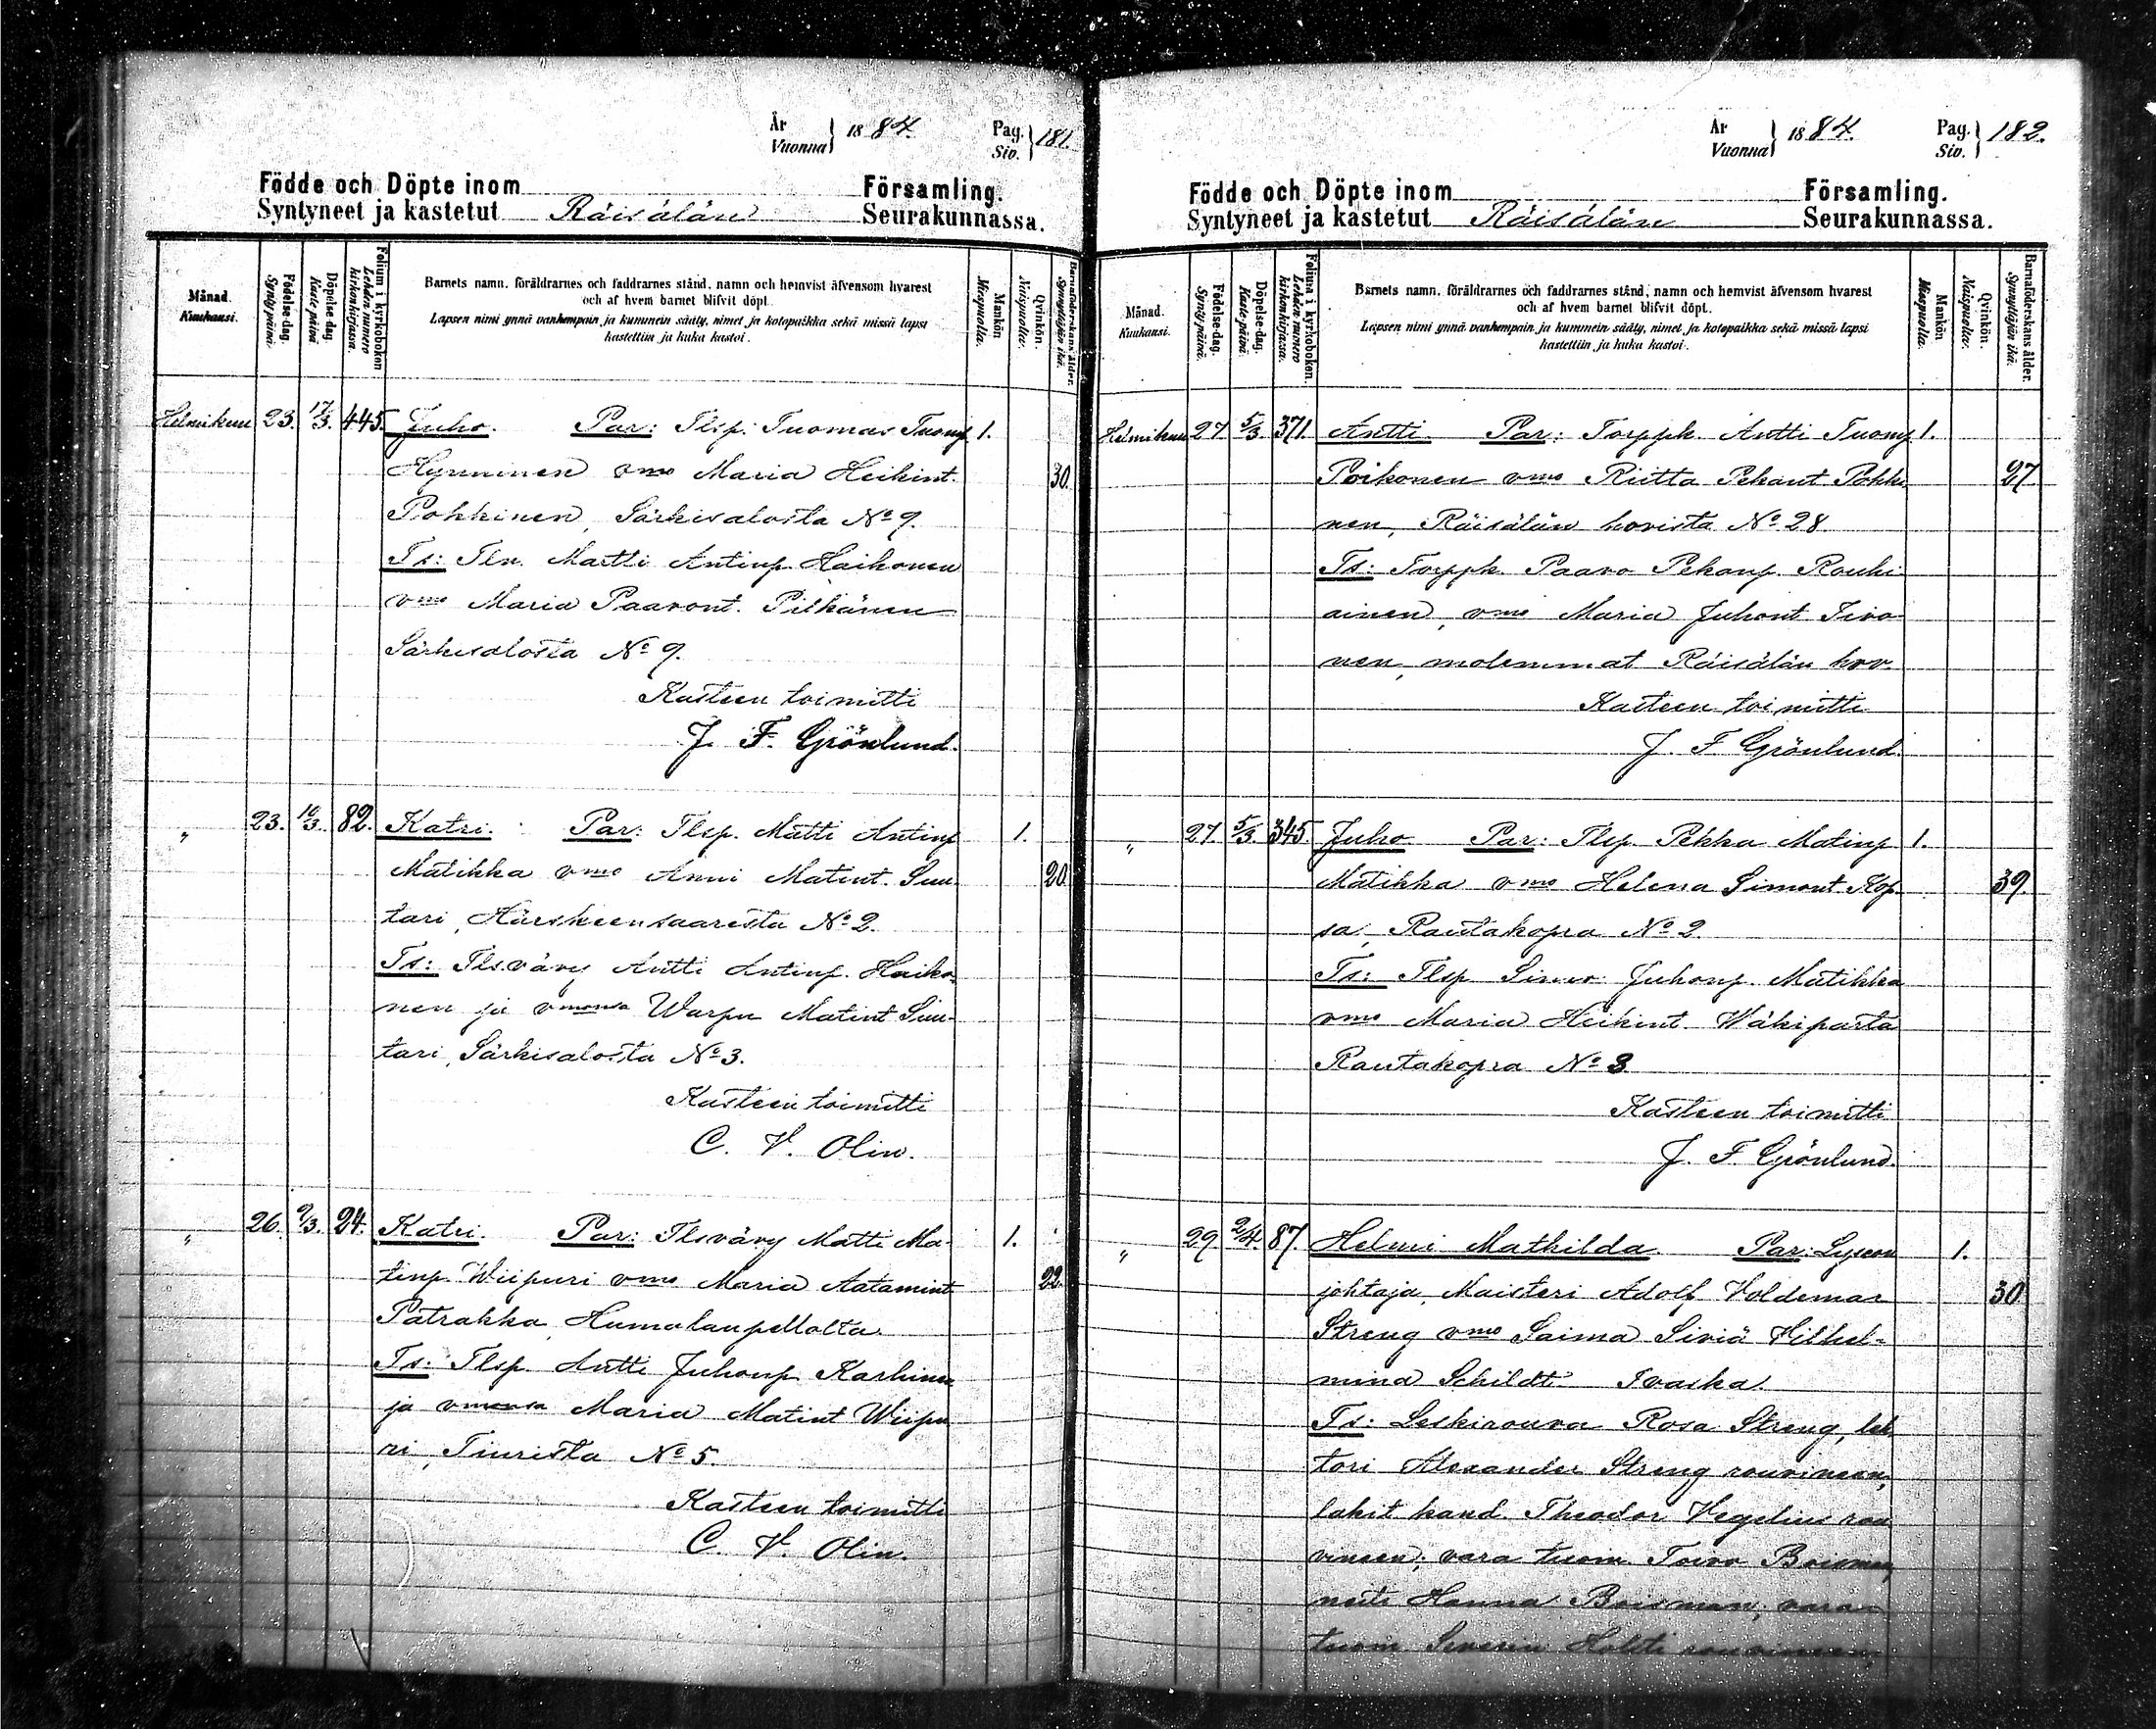 År
Vuonna } 1884. Pag.
Siv. } 181.
Födde och Döpte inom Församling.
Syntyneet ja kastetut Räisälän Seurakunnassa.
Månad.
Kuukausi.
Födelse-dag.
Syntypäivä.
Döpelse-dag.
Kastepäivä.
Folium i kyrkoboken.
Lehden numero
kirkonkirjassa.
Barnets namn, föräldrarnes och faddrarnes stånd, namn och hemvist äfvensom hvarest
och af hvem barnet blifvit döpt.
Lapsen nimi ynnä vanhempain ja kummein sääty, nimet ja kotopaikka sekä missä lapsi
kastettiin ja kuka kastoi.
Mankön.
Miespuolia.
Qvinkön.
Naispuolia.
Barnaföderskans ålder.
Synnyttäjän ikä.
Helmikuu 23. 17/3. 445. Juho. Par: Tlsp. Tuomas Tuomp 1.
Hynninen vmo Maria Heikint. 30.
Pokkinen, Särkisalosta No 9.
Ts: Tln. Martti Antinp. Haikonen
vmo Maria Paavont. Pitkänen
Särkisalosta No 9.
Kasteen toimitti
J. F. Grönlund.
" 23. 16/3. 82. Katri. Par: Tlsp. Matti Antinp 1.
Matikka vmo Anni Matint. Suu- 20.
tari, Härskeensaaresta No 2.
Ts: Tls.vävy Antti Antinp. Haiko-
nen ja vmonsa Warpu Matint Suu-
tari, Särkisalosta No 3.
Kasteen toimitti
C. V. Olin.
" 26. 9/3. 24. Katri. Par: Tlsvävy Matti Ma- 1.
tinp. Wiipuri vmo Maria Aatamint 22.
Patrakka Humalaupellolta.
Ts: Tlsp. Antti Juhonp. Karhinen
ja vmonsa Maria Matint Wiipu-
ri, Tiurista No 5.
Kasteen toimitti
C. V. Olin.
År
Vuonna } 1884. Pag.
Siv. } 182.
Födde och Döpte inom Församling.
Syntyneet ja kastetut Räisälän Seurakunnassa.
Månad.
Kuukausi.
Födelse-dag.
Syntypäivä.
Döpelse-dag.
Kastepäivä.
Folium i kyrkoboken.
Lehden numero
kirkonkirjassa.
Barnets namn, föräldrarnes och faddrarnes stånd, namn och hemvist äfvensom hvarest
och af hvem barnet blifvit döpt.
Lapsen nimi ynnä vanhempain ja kummein sääty, nimet ja kotopaikka sekä missä lapsi
kastettiin ja kuka kastoi.
Mankön.
Miespuolia.
Qvinkön.
Naispuolia.
Barnaföderskans ålder.
Synnyttäjän ikä.
Helmikuu 27. 5/3. 371. Antti. Par: Torppk. Antti Tuomp 1.
Poikonen vmo Riitta Pekant Pokki- 27
nen, Räisälän hovista No 28
Ts: Torppk. Paavo Pekanp. Rouhi-
ainen, vmo Maria Juhont Tero-
nen, molemmat Räisälän hov.
Kasteen toimitti
J. F. Grönlund.
" 27. 5/3. 345. Juho Par: Tlsp Pekka Matinp 1.
Matikka vmo Helena Simont Kop- 39.
sa, Rautakopra No 2.
Ts: Tlsp Simo Juhonp. Matikka
vmo Maria Heikint. Wäkiparta
Rautakopra No 3
Kasteen toimitti
J. F. Grönlund.
" 29. 2/4. 87. Helmi Mathilda. Par: Lyseon 1.
johtaja, Maisteri Adolf Voldemar 30
Streng vmo Saima Siviä Vilhel-
mina Schildt. Ivaska.
Ts: Leskirouva Rosa Streng, leh-
tori Alexander Streng rouvineen,
lakit kand. Theodor Vegelius rou-
vineen; vara tuom. Toivo Boisman,
neiti Hanna Boisman; vara-
tuom Severin Holtti rouvineen,